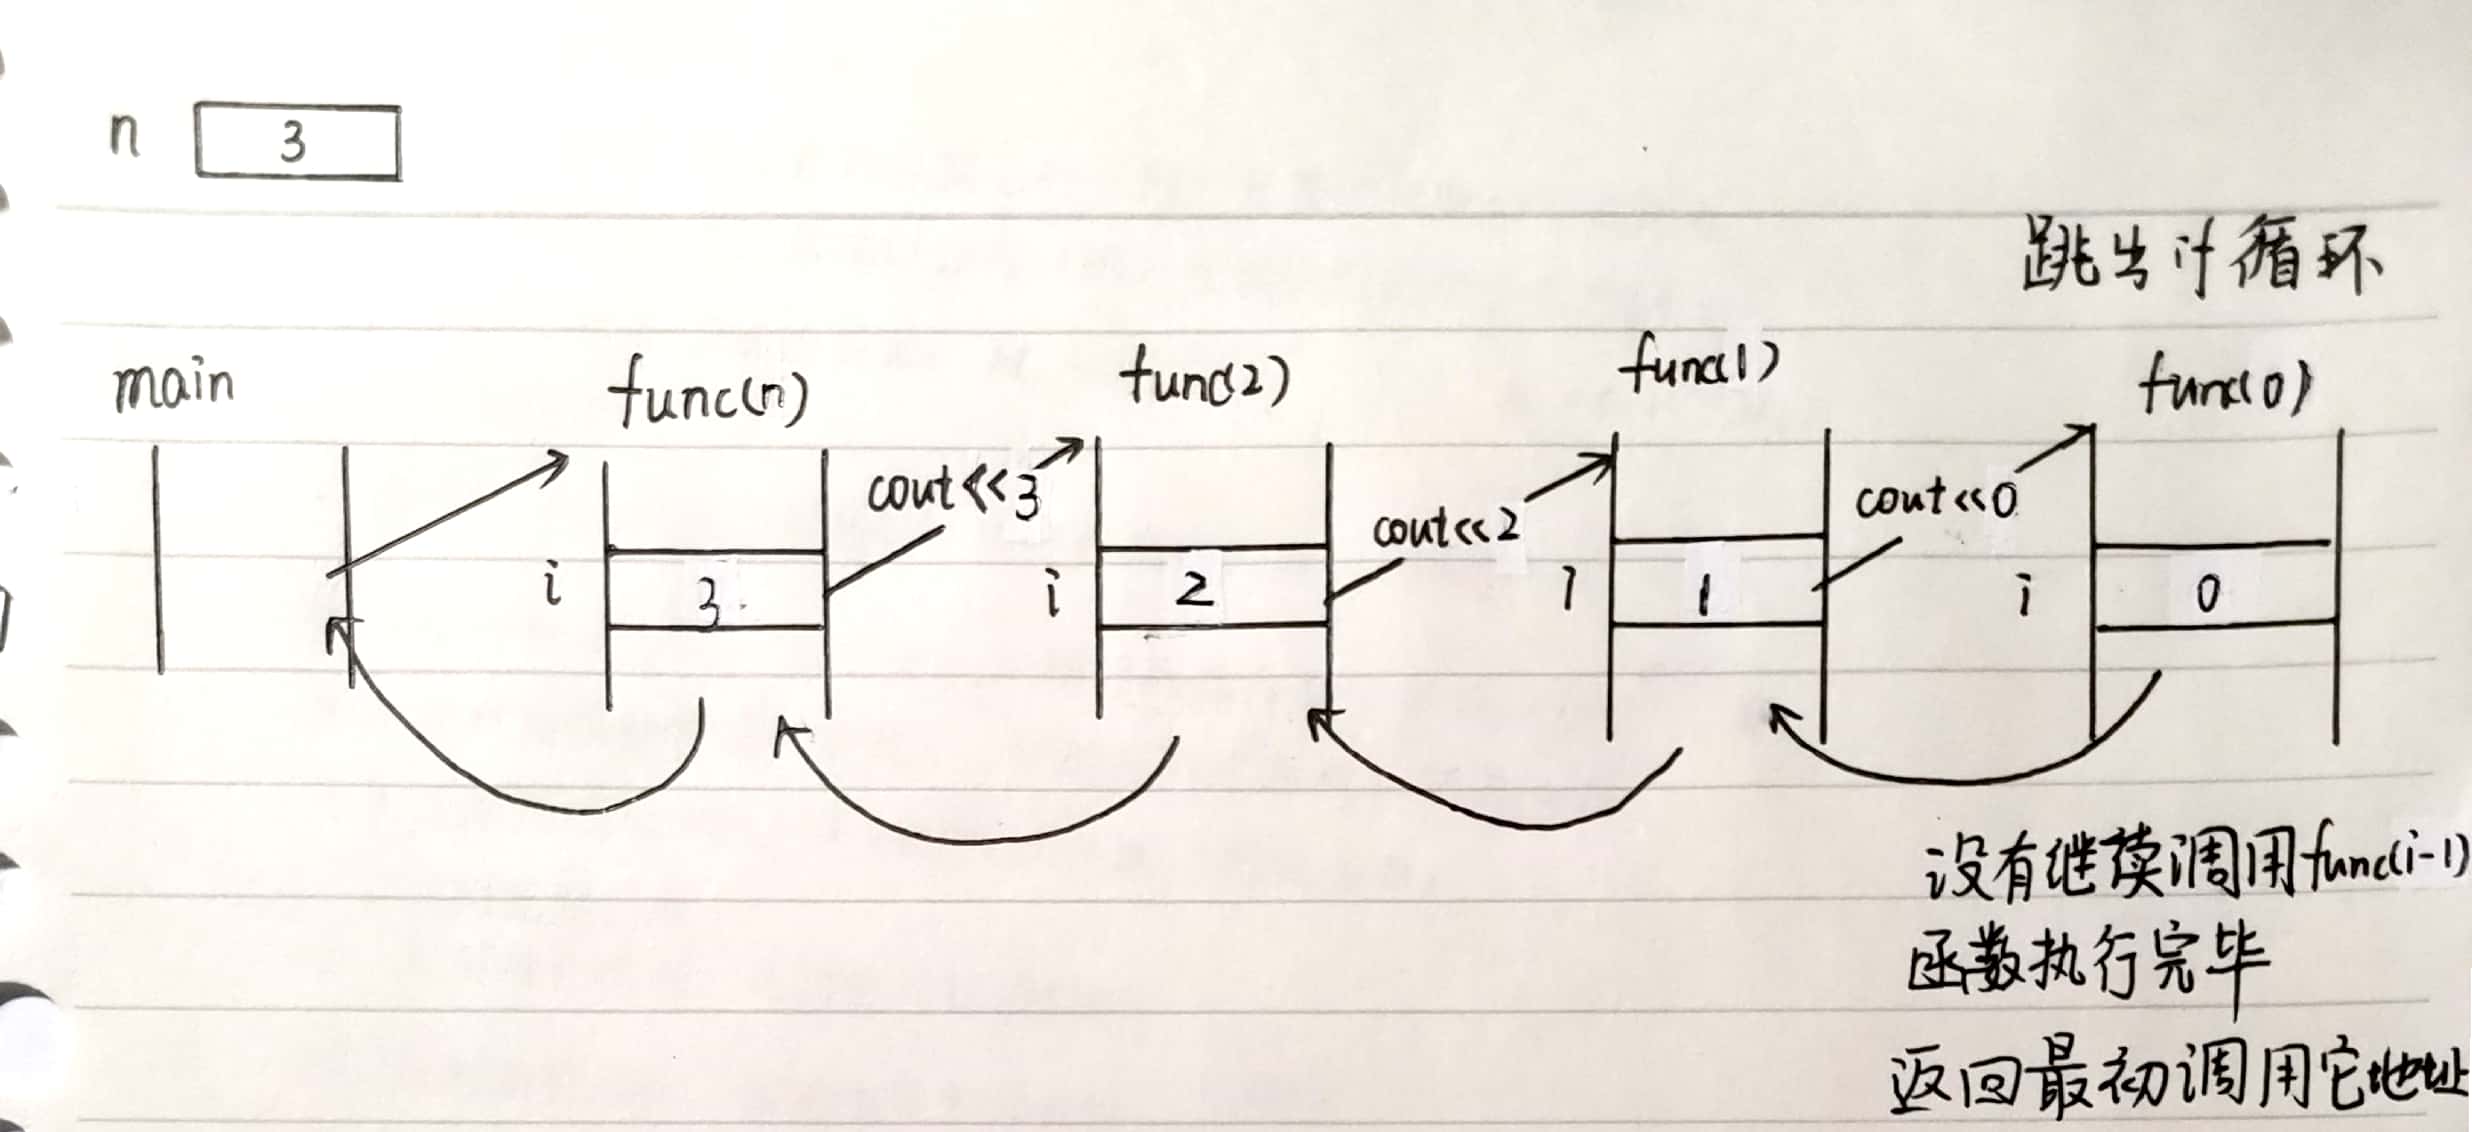 n 3
跳出 if 循环
main func(n) func(2) func(1) func(0)
cout<<3 cout<<2 cout<<0
i 3 i 2 i 1 i 0
没有继续调用func(i-1)
函数执行完毕
返回最初调用它地址